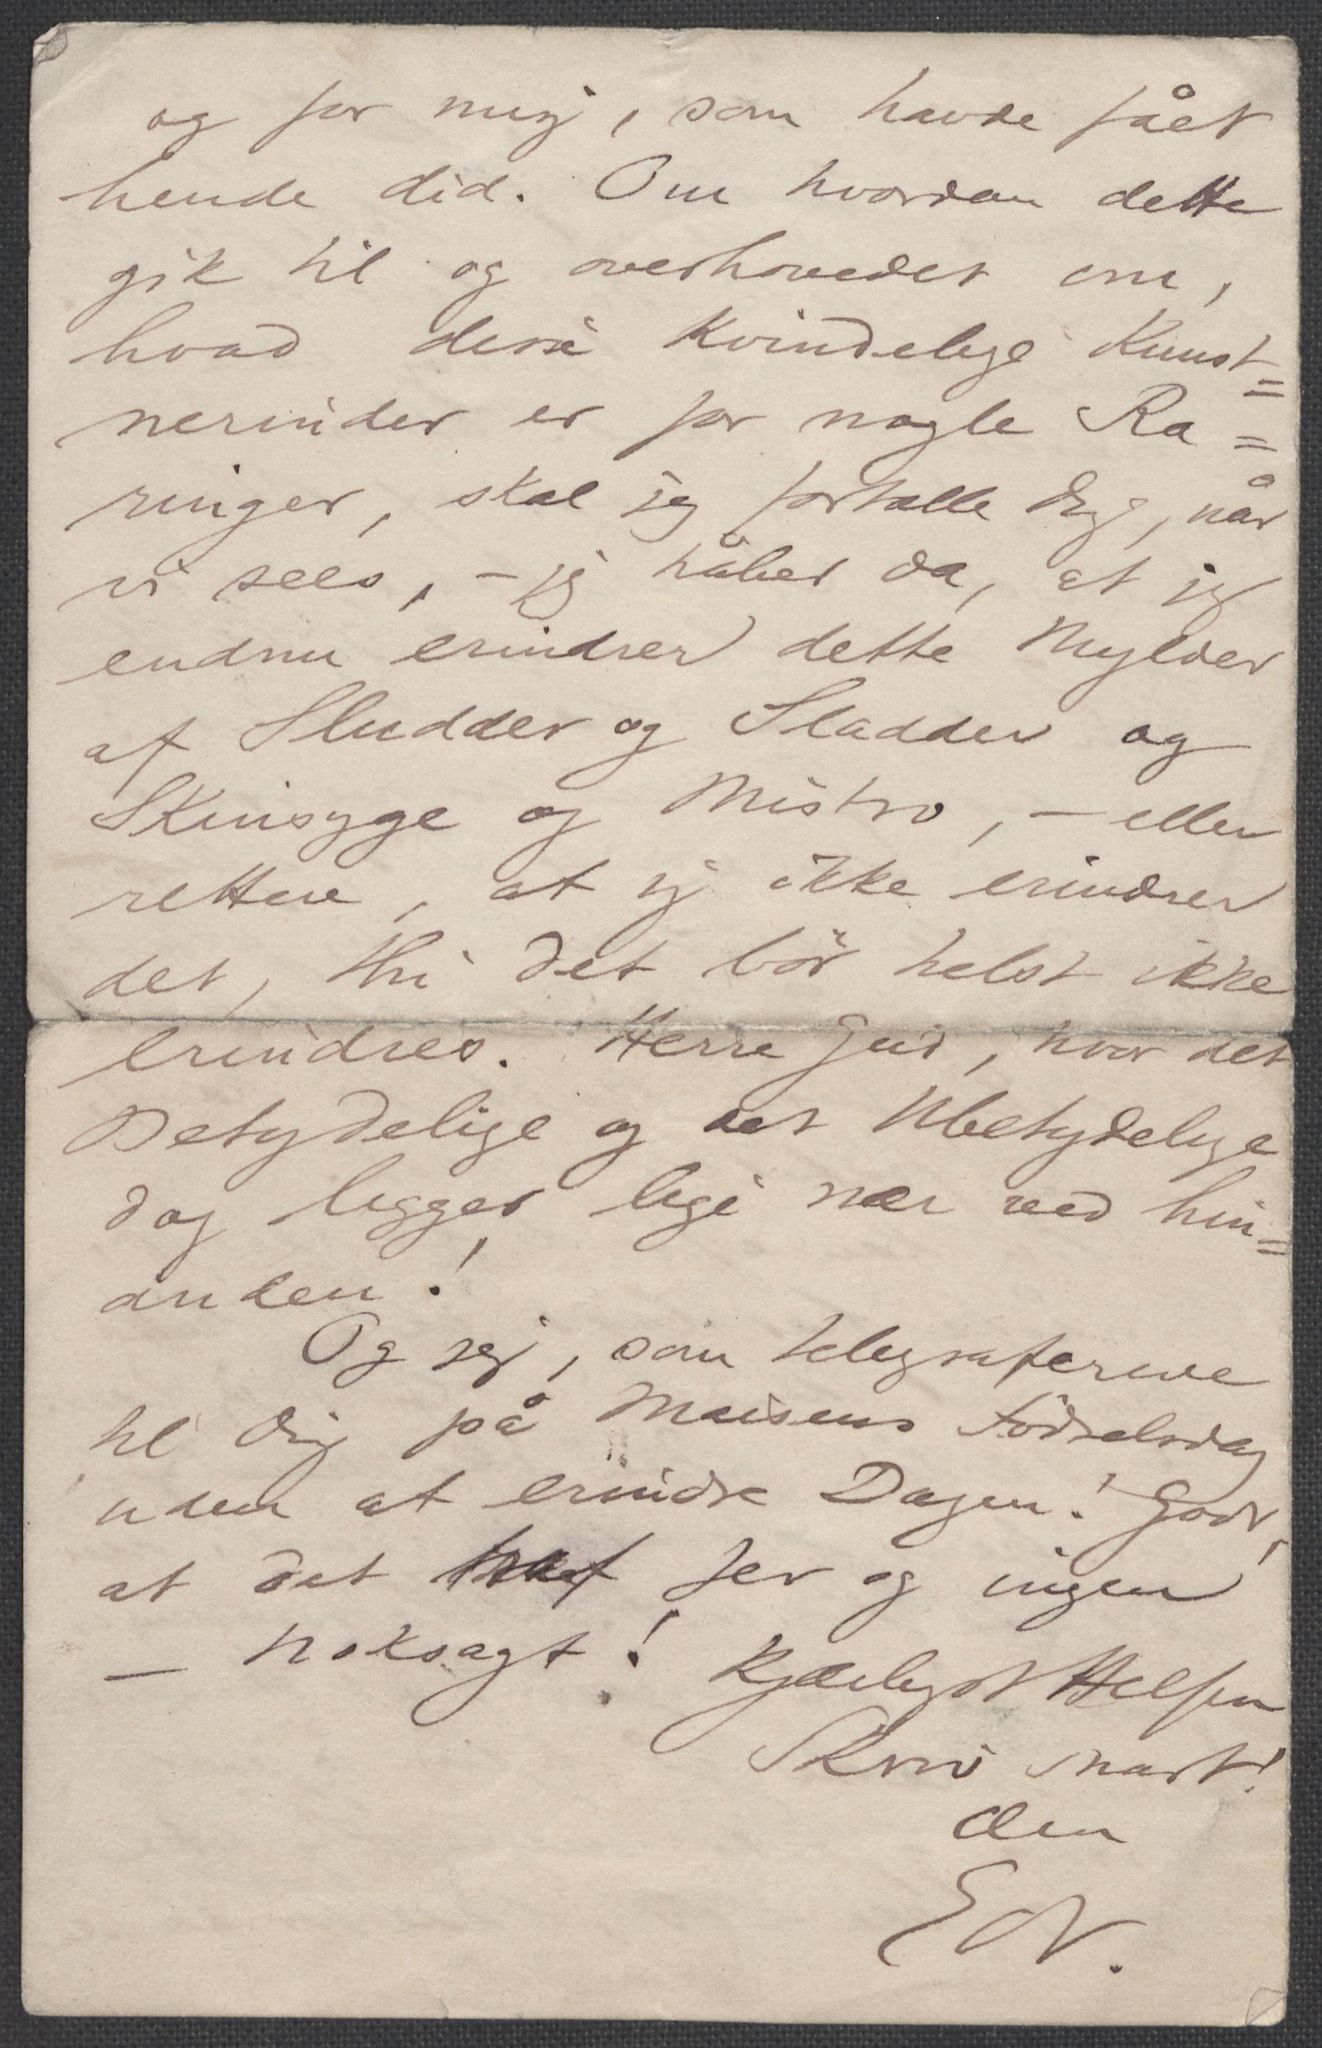 og for mig, som havde fået
hende did. Om hvordan dette
gik til og overhovedet om,
hvad disse kvindelige Kunst=
nerinder er for nogle Ra=
ringer, skal jeg fortælle Dig, når
vi sees, – jeg håber da, at jeg
endnu erindrer dette Mylder
af Sludder og Sladder og
Skinsyge og Mistro, – eller
rettere, at jeg ikke erindrer
det, thi det bör helst ikke
erindres. Herre Gud, hvor det
Betydelige og det Ubetydelige
dog ligger lige nær ved hin=
anden!
Og jeg, som telegraferede
til Dig på Maisens Födselsdag
uden at erindre Dagen! Godt,
at det traf Jer og ingen
– noksagt! Kjærligst Hilsen
Skriv snart!
Din
Edv.